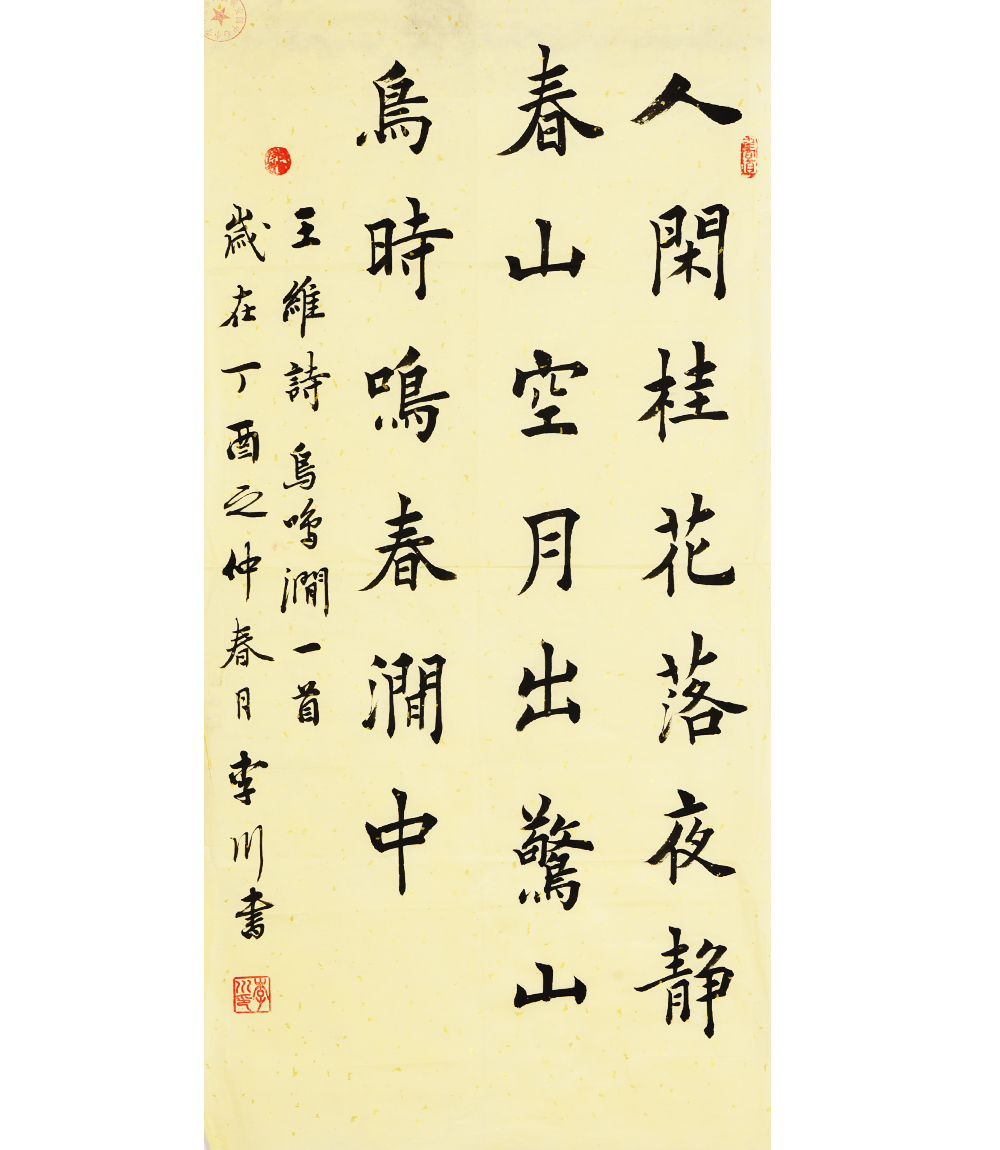 人閑桂花落夜静
春山空月出驚山
鳥時鳴春澗中
王維詩鳥鳴澗一首
歲在丁酉之仲春月李川書
書道
李川印